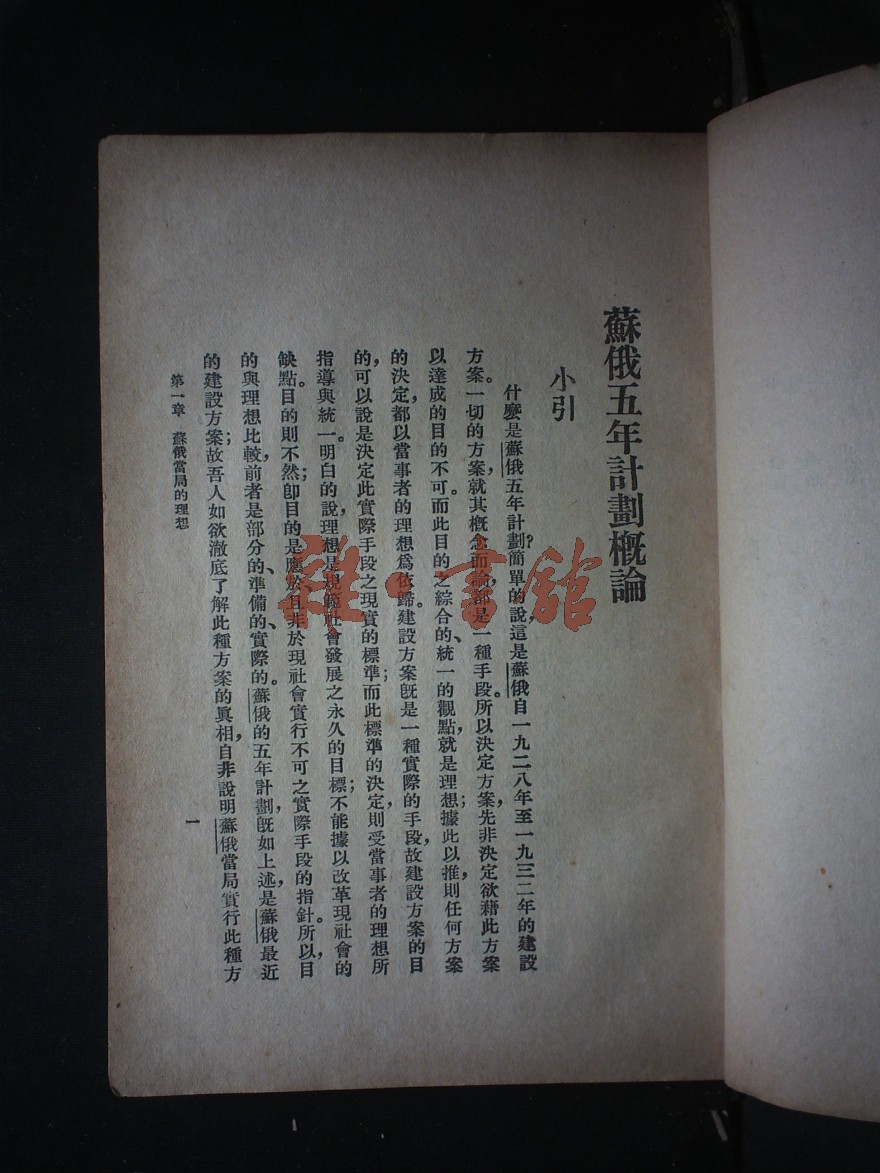 蘇俄五年計劃槪論
小引
什麼是蘇俄五年計劃?簡單的說,這是蘇俄自一九二八年至一九三二年的建設
方案。一切的方案,就其槪念而論,都是一種手段。所以決定方案,先非決定欲藉此方案
以達成的目的不可。而此目的之綜合的、統一的觀點,就是理想;據此以推,則任何方案
的決定,都以當事者的理想爲依歸。建設方案旣是一種實際的手段,故建設方案的目
的,可以說是決定此實際手段之現實的標準;而此標準的決定,則受當事者的理想所
指導與統一。明白的說,理想是規範社會發展之永久的目標;不能據以改革現社會的
缺點。目的則不然;卽目的是應於且非於現社會實行不可之實際手段的指針。所以,目
的與理想比較,前者是部分的、準備的、實際的。蘇俄的五年計劃,旣如上述,是蘇俄最近
的建設方案;故吾人如欲澈底了解此種方案的眞相,自非說明蘇俄當局實行此種方
第一章 蘇俄當局的理想
一
雜·書館